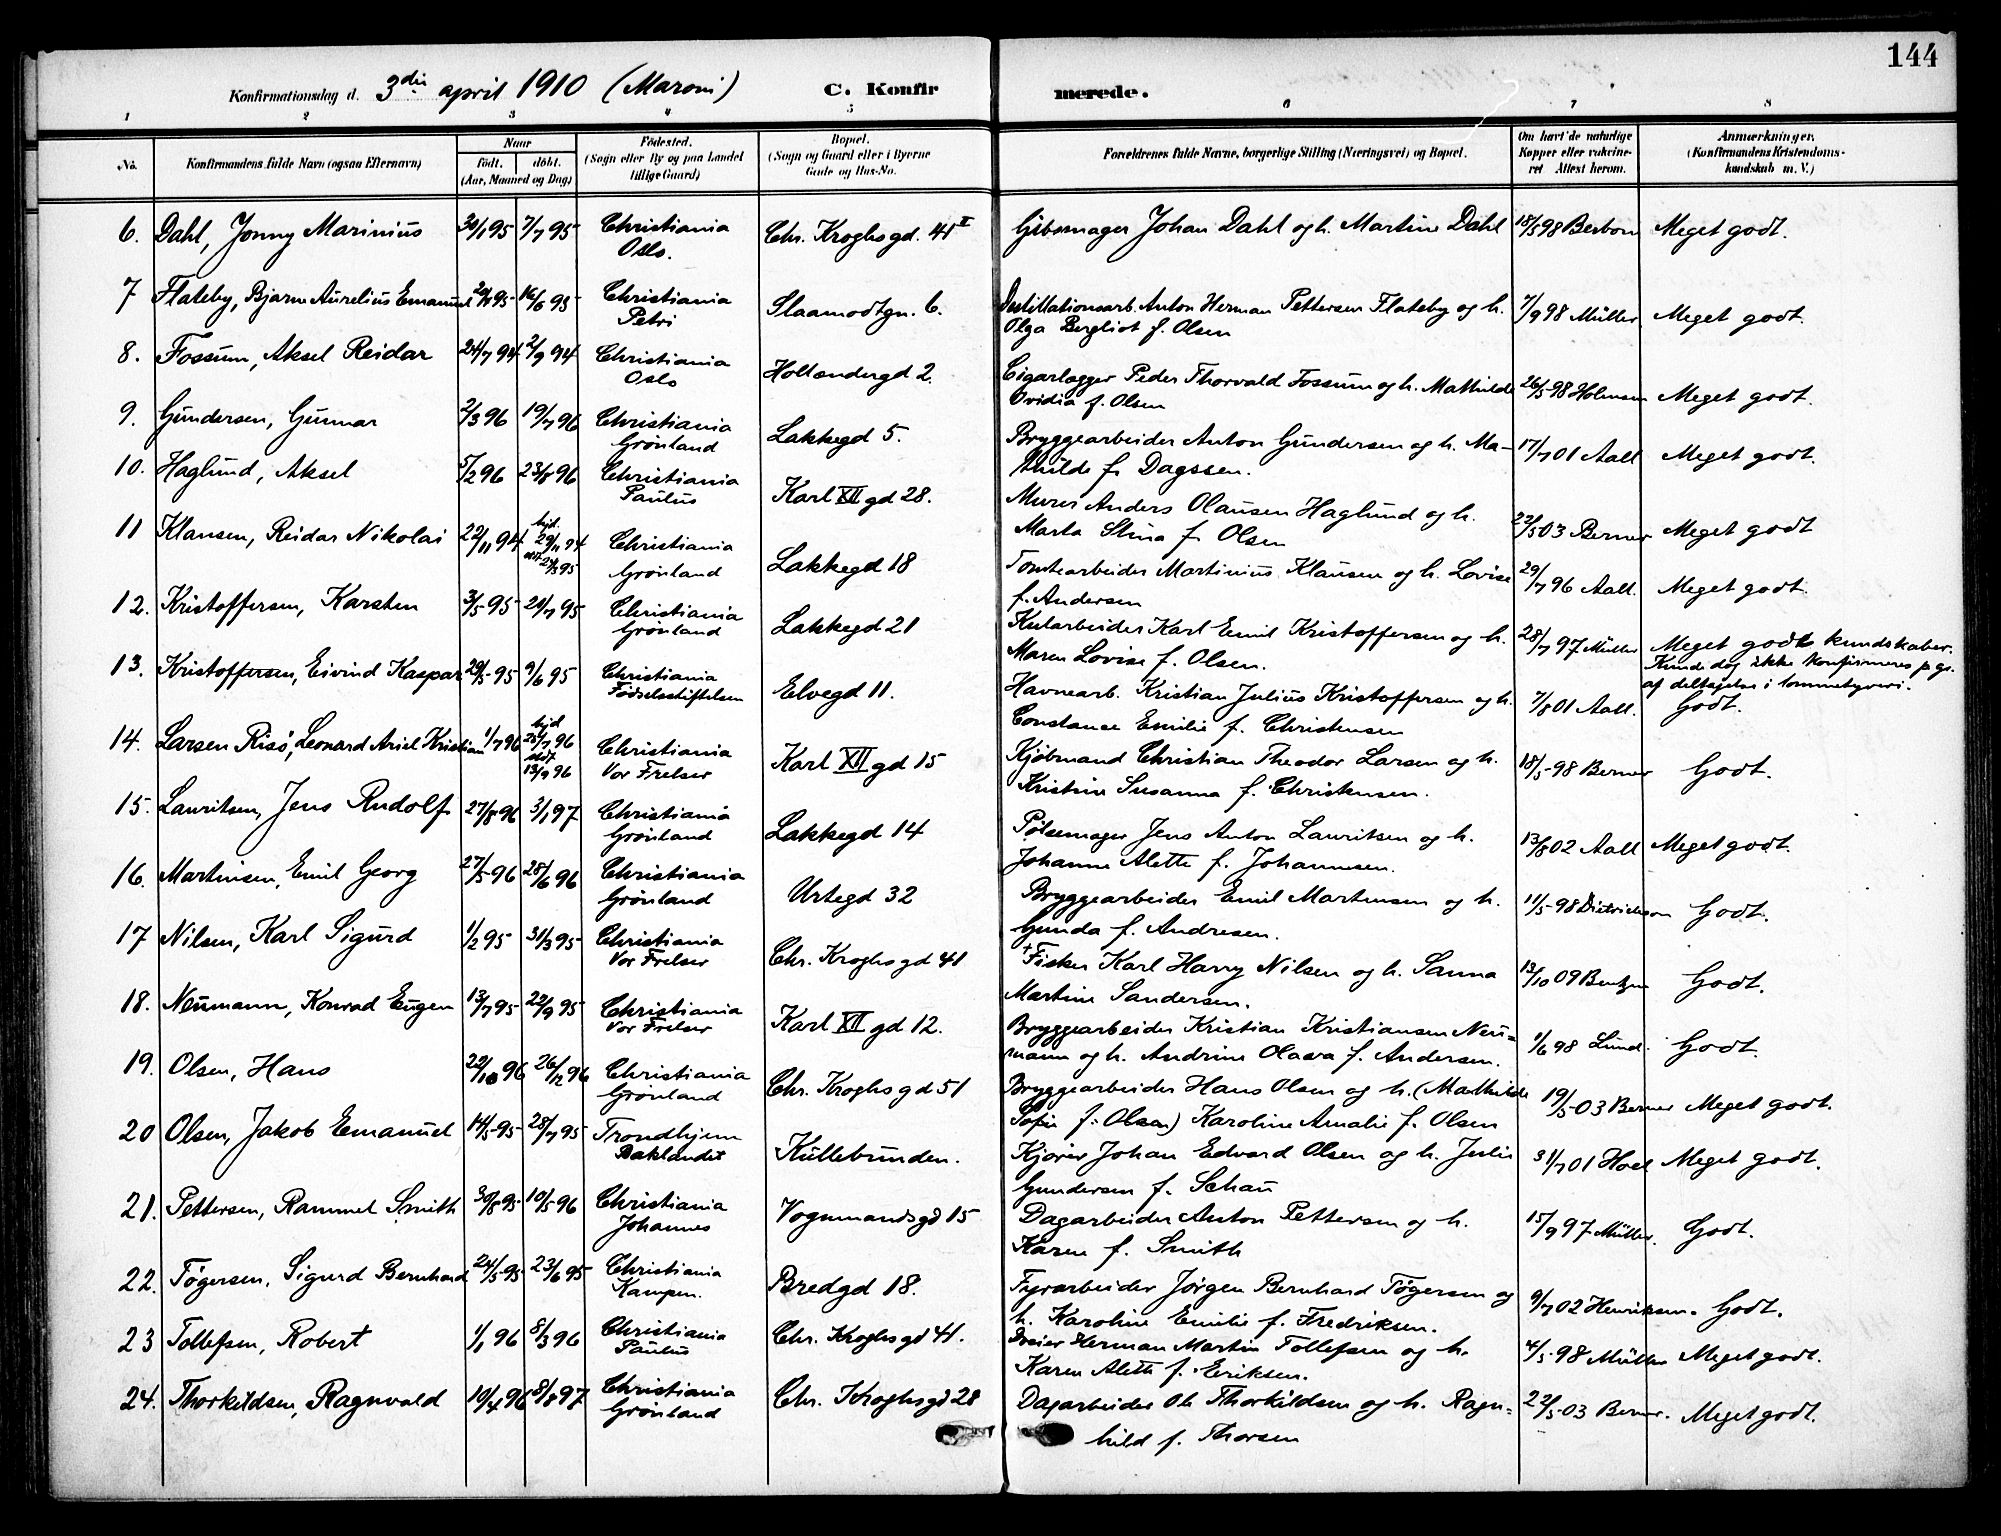 144
Konfirmationsdag d. 3die april 1910 (Maroni) C. Konfirmerede.
1 2 3 4 5 6 7 8
No. Konfirmandens fulde Navn (ogsaa Efternavn) Naar født. døbt. (Aar, Maaned og Dag) Fødested. (Sogn eller By og paa Landet tillige Gaard) Bopæl. (Sogn og Gaard eller i Byerne Gade og Hus-No. Forældrenes fulde Navne, borgerlige Stilling (Næringsvei) og Bopæl. Om havt de naturlige Kopper eller vaccineret Attest herom. Anmærkninger. (Konfirmandens Kristendomskundskab m. V.)
6. Dahl, Jonny Marinius 30/1 95 7/7 95 Christiania Oslo. Chr. Kroghsgd. 41 II Gibsmager Johan Dahl og h. Martine Dahl 18/5 98 Meget godt.
7 Flateby, Bjarne Aurelius Emanuel 95 16/6 95 Christiania Petri Slaamodtgn. 6. Destillationsarb. Anton Herman Pettersen Flateby og h. Olga Bergliot f. Olsen 7/9 98 Müller. Meget godt.
8. Fossum, Aksel Reidar 24/7 94 2/9 94 Christiania Oslo Hollændergd 2. Cigarlægger Peder Thorvald Fossum og h. Mathilde Ovidia f. Olsen 26/5 98 Holmsen Meget godt.
9. Gundersen, Gunnar 2/3 96 19/7 96 Christiania Grønland Lakkegd 5. Bryggearbeider Anton Gundersen og h. Mathilde f. Dagssen. 17/7 01 Aall Meget godt.
10. Haglund, Aksel 5/2 96 23/8 96 Christiania Paulus Karl XII gd 28. Murer Anders Olausen Haglund og h. Marta Stina f. Olsen 22/5 03 Berner Meget godt
11 Klausen, Reidar Nikolai 22/11 94 hjd. 29/11 94 stdf. 24/3 95 Christiania Grønland Lakkegd 18 Tomtearbeider Martinius Klausen og h. Lovise f. Andersen 29/7 96 Aall. Meget godt.
12. Kristoffersen, Karsten 3/5 95 21/7 95 Christiania Grønland Lakkegd 21 Kularbeider Karl Emil Kristoffersen og h. Maren Lovise f. Olsen. 28/7 97 Müller Meget gode kundskaber. Kunde dog ikke konfirmeres p gr. af deltagelse i lommetyveri.
13. Kristoffersen, Eivind Kaspar 29/5 95 9/6 95 Christiania Fødselsstiftelsen Elvegd 11. Havnearb. Kristian Julius Kristoffersen og h. Constance Emilie f. Christensen 7/8 01 Aall. Godt.
14. Larsen Risö, Leonard Ariel Kristian 1/7 96 hjd 25/7 96 stdf 13/9 96 Christiania Vor Frelser Karl XII gd 15 Kjøbmand Christian Theodor Larsen og h. Kristine Susanna f. Christensen. 18/5 98 Berner Godt.
15. Lauritsen, Jens Rudolf 27/8 96 3/1 97 Christiania Grønland Lakkegd 14 Pølsemager Jens Anton Lauritsen og h. Johanne Alette f. Johannesen. 13/8 02 Aall Meget godt.
16. Martinsen, Emil Georg 27/5 96 28/6 96 Christiania Grønland Urtegd 32 Bryggearbeider Emil Martinsen og h. Gunda f. Andresen. 11/5 98 Dietrichson Godt.
17 Nilsen, Karl Sigurd 1/2 95 31/3 95 Christiania Vor Frelser Chr. Kroghsgd 41 † Fisker Karl Harry Nilsen og h. Sanna Martine Sandersen. 13/10 09 Bentzen Godt.
18. Neumann, Konrad Eugen 13/7 95 22/9 95 Christiania Vor Frelser Karl XII gd 12. Bryggearbeider Kristian Kristiansen Neumann og h. Andrine Olava f. Andersen. 1/6 98 Lund. Godt.
19. Olsen, Hans 22/10 96 26/12 96 Christiania Grønland Chr. Kroghsgd 51 Bryggearbeider Hans Olsen og h. (Mathilde Sofie f. Olsen) Karoline Amalie f. Olsen 19/5 03 Berner Meget godt.
20 Olsen, Jakob Emanuel 14/5 95 28/7 95 Trondhjem Baklandet Kullebunden. Kjører Johan Edvard Olsen og h. Julie Gundersen f. Schau 31/7 01 Hoel Meget godt.
21. Pettersen, Rammel Smith 30/8 95 10/5 96 Christiania Johannes Vognmandsgd 15 Dagarbeider Anton Pettersen og h. Karen f. Smith 15/9 97 Müller. Godt.
22. Tøgersen, Sigurd Bernhard 24/5 95 23/6 95 Christiania Kampen. Bredgd 18. Fyrarbeider Jørgen Bernhard Tøgersen og h. Karoline Emilie f. Fredriksen. 9/7 02 Henriksen. Godt.
23 Tollefsen, Robert 1/1 96 8/3 96 Christiania Paulus Chr. Kroghsgd 41. Dreier Herman Martin Tollefsen og h. Karen Aleth f. Eriksen. 4/5 98 Müller Meget godt.
24. Thorkildsen, Ragnvald 10/4 96 8/8 97 Christiania Grønland Chr. Kroghsgd 28 Dagarbeider Ole Thorkildsen og h. Ragnhild f. Thorsen 22/5 03 Berner. Meget godt.